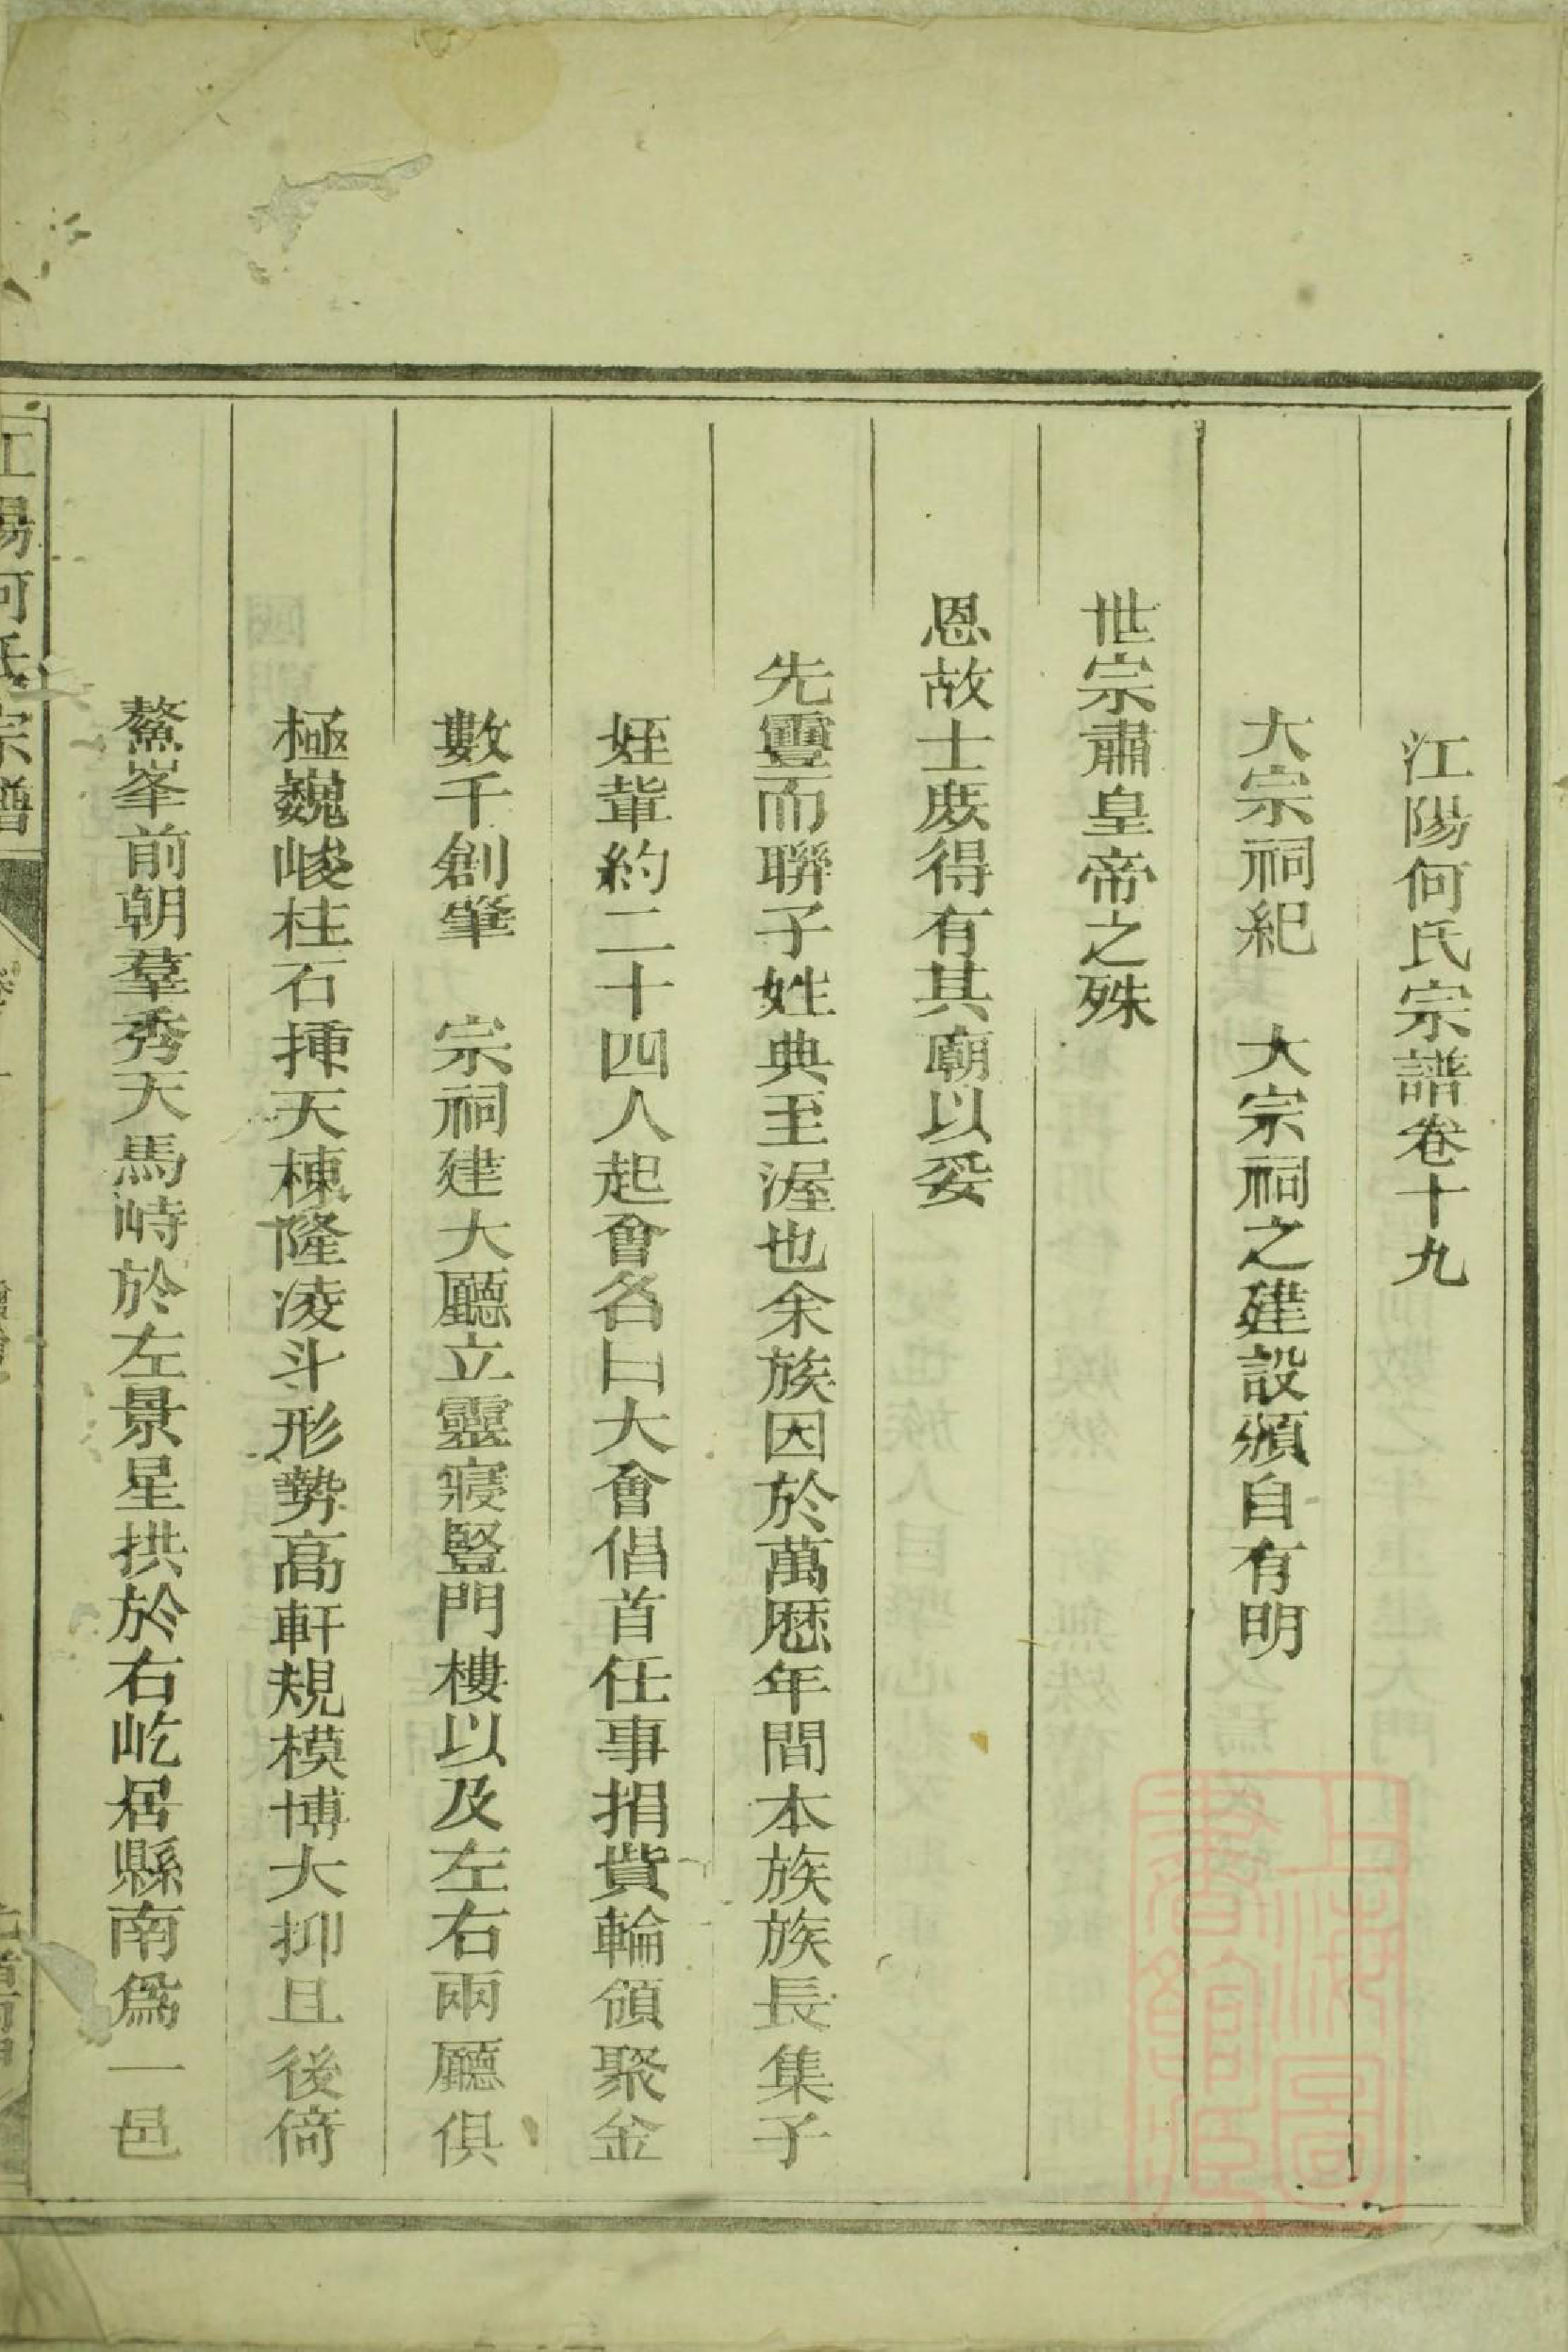 江陽何氏宗譜卷十九
大宗祠紀　大宗祠之建設頒自有明
世宗肅皇帝之殊
恩故士庶得有其廟以妥
先靈而聯子姓典至渥也余族因於萬厯年間本族族長集子
姪輩約二十四人起會名曰大會倡首任事捐貲輪頒聚金
數千創肇　宗祠建大廳立靈寢豎門樓以及左右兩廳俱
極巍峻柱石揷天棟隆凌斗形勢高軒規模博大抑且後倚
鰲峯前朝羣秀天馬峙於左景星拱於右屹居縣南爲一邑
江陽何氏宗譜
上海圖書館藏